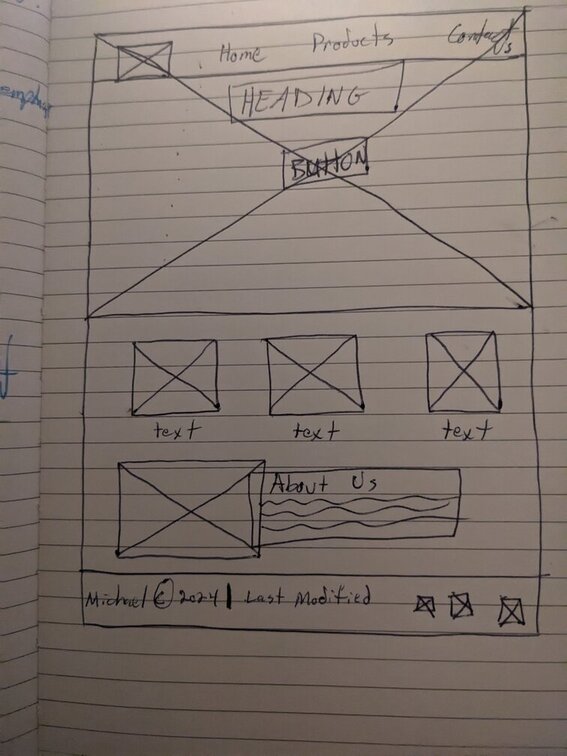 Home Products Contact Us
HEADING
BUTTON
text text text
About Us
Michael © 2024 | Last Modified